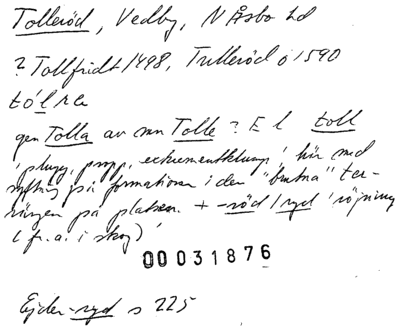 Tolleröd, Vedby, N Åsbo hd
? Tollfridt 1498, Trulleröd ö 1590
tó̱lra
gen Tolla av mn Tolle? El toll
'plugg, propp, exkrementklump', här med
syftning på formationer i den "brutna" ter-
rängen på platsen. + -röd / ryd 'röjning
(fr.a. i skog)'
00031876
Ejder-ryd s 225